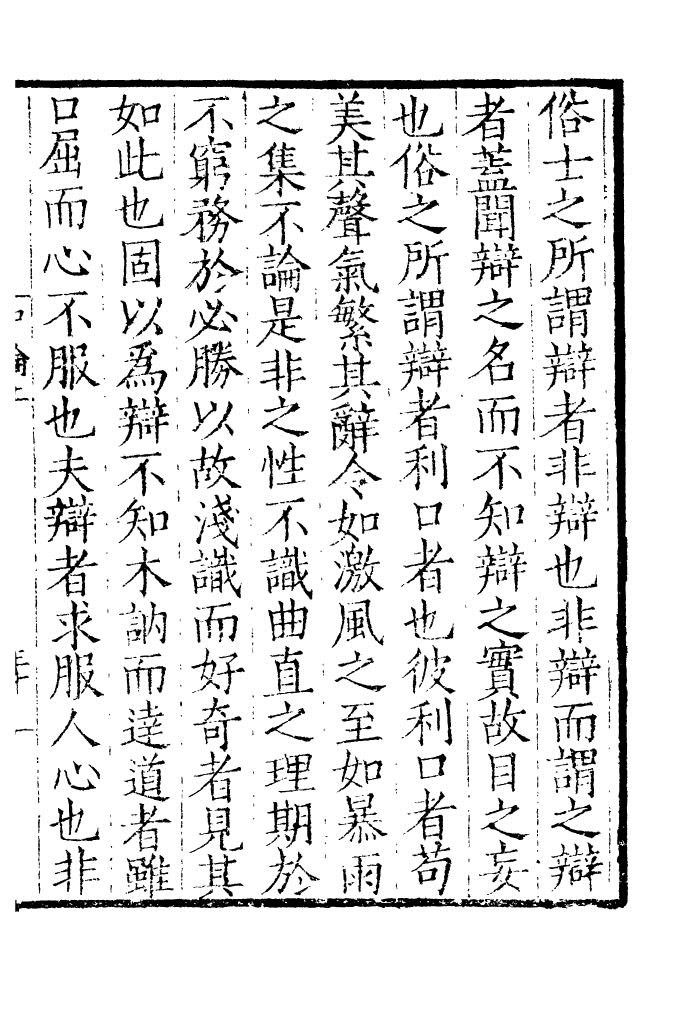 俗士之所謂辯者非辯也非辯而謂之辯
者蓋聞辯之名而不知辯之實故目之妄
也俗之所謂辯者利口者也彼利口者苟
美其聲氣繁其辭令如激風之至如暴雨
之集不論是非之性不識曲直之理期於
不窮務於必勝以故淺識而好奇者見其
如此也固以爲辯不知木訥而逹道者雖
口屈而心不服也夫辯者求服人心也非